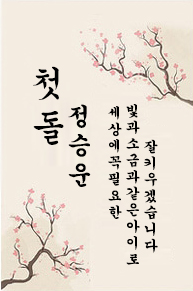 첫돌
정승윤
세상에꼭필요한
빛과소금과같은아이로
잘키우겠습니다